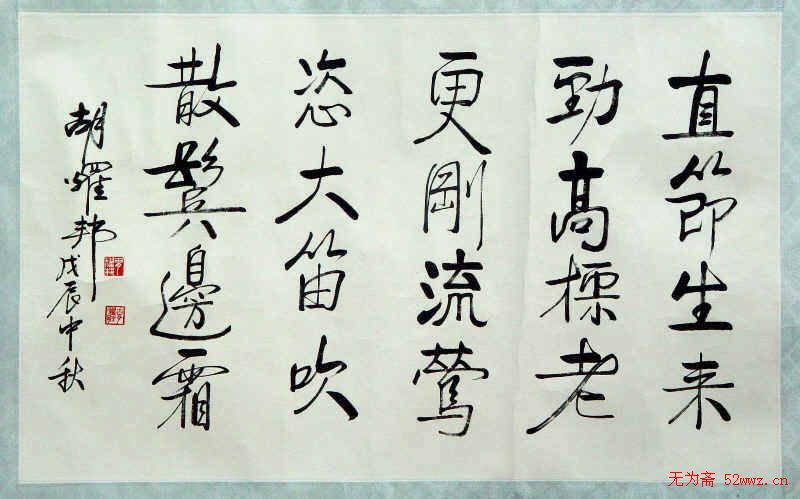 直節生来
勁高標老
更剛流鶯
恣大笛吹
散鬢邊霜
胡耀邦戊辰中秋
无为斋 52wwz.cn